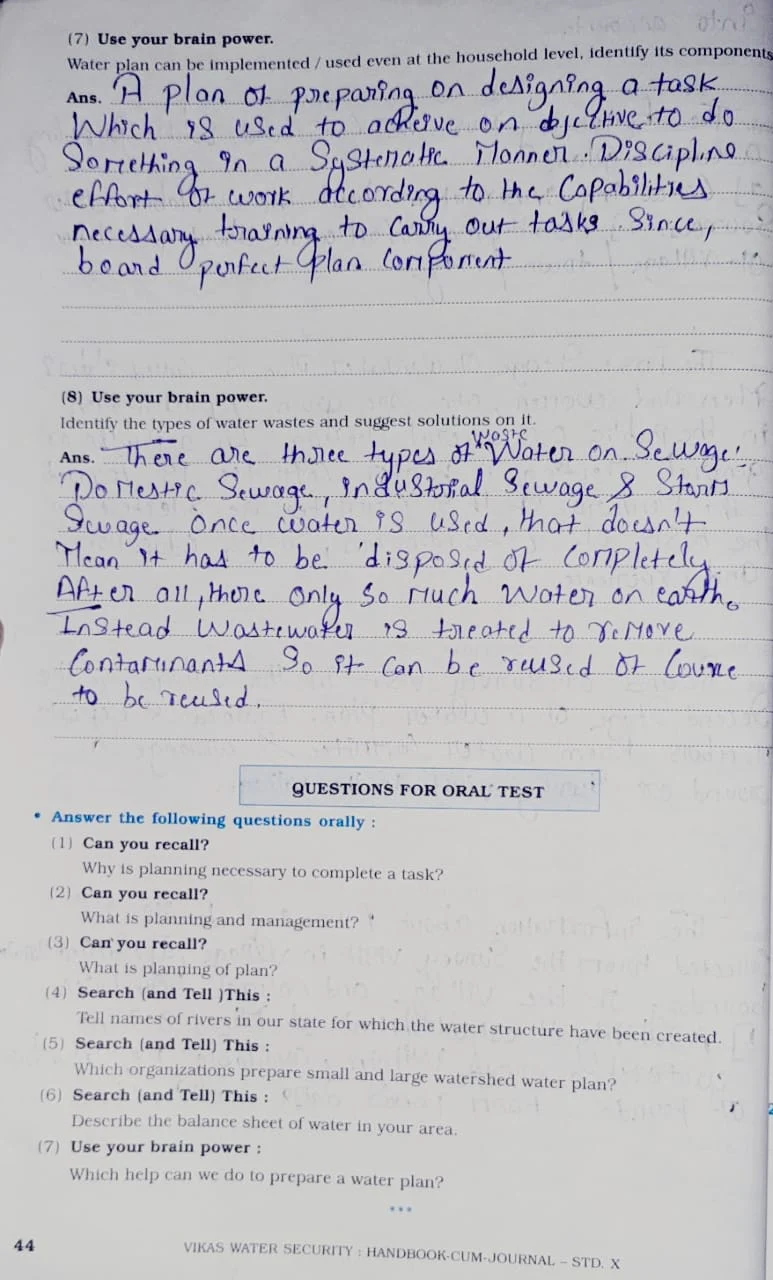 (7) Use your brain power.
Water plan can be implemented / used even at the household level, identify its components
Ans. A plan of preparing on designing a task
Which is used to acheive on objective to do
Something in a Systematic Manner. Discipline
effort of work according to the Capabilities
necessary training to Carry out tasks. Since,
board perfect plan Component
(8) Use your brain power.
Identify the types of water wastes and suggest solutions on it.
Waste
Ans. There are three types of Water on Sewage:
Domestic Sewage, Industorial Sewage & Storm
Sewage Once water is used, that doesn't
Mean it has to be disposed of Completely.
After all, there only so much Water on earth.
Instead Wastewater is treated to reMove
Contaminants So it Can be reused of Course
to be reused.
QUESTIONS FOR ORAL TEST
• Answer the following questions orally :
(1) Can you recall?
Why is planning necessary to complete a task?
(2) Can you recall?
What is planning and management?
(3) Can you recall?
What is planning of plan?
(4) Search (and Tell )This :
Tell names of rivers in our state for which the water structure have been created.
(5) Search (and Tell) This :
Which organizations prepare small and large watershed water plan?
(6) Search (and Tell) This :
Describe the balance sheet of water in your area.
(7) Use your brain power :
Which help can we do to prepare a water plan?
***
44
VIKAS WATER SECURITY : HANDBOOK-CUM-JOURNAL – STD. X